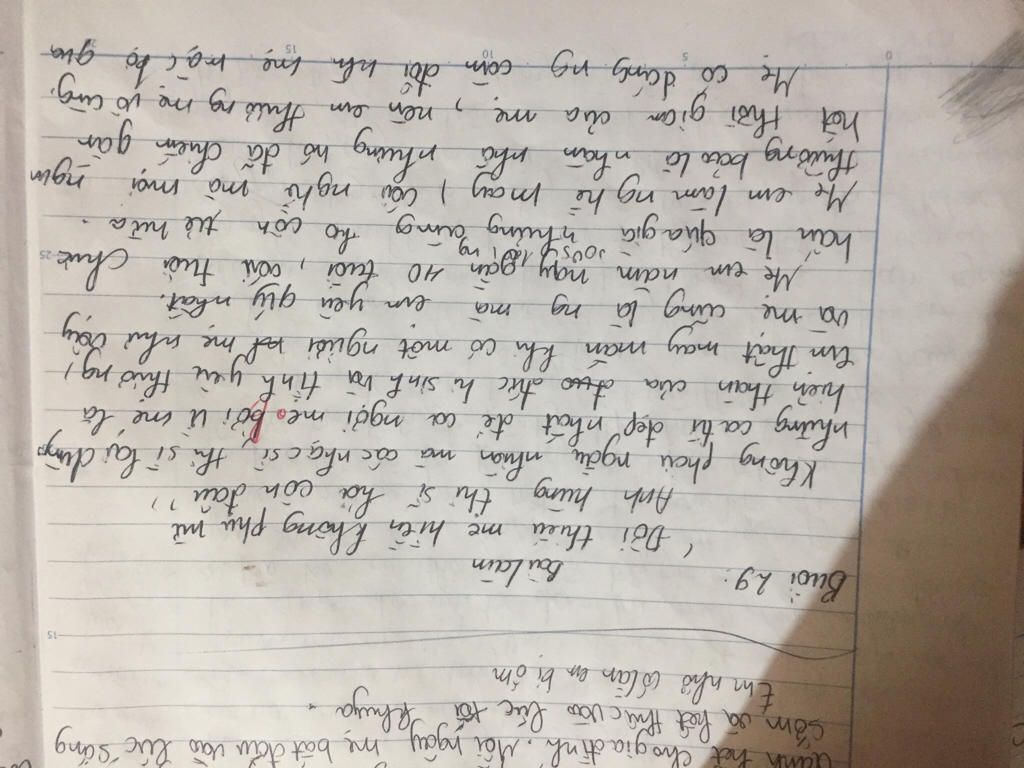 dành hết cho gia đình. Mỗi ngày mẹ bắt đầu vào lúc sáng
sớm và kết thúc vào lúc tối khuya.
Em nhớ có lần em bị ốm
15
Buổi 29: Bài làm
"Đời thiếu mẹ hiền không phụ nữ
Anh hùng thi sĩ hỏi còn đâu"
Không phải ngẫu nhiên mà các nhạc sĩ thi sĩ lại dùng
những ca từ đẹp nhất để ca ngợi mẹ bởi vì mẹ là
hiện thân của đức hi sinh và tình yêu thương,
Em thật may mắn khi có một người mẹ như vậy
và mẹ cũng là ng mà em yêu quý nhất.
Mẹ em năm nay gần 40 tuổi, cái tuổi chưa
25
hẳn là quá già nhưng cũng ko còn trẻ nữa.
Mẹ em làm nghề may, cái nghề mà mọi người
thường bảo là nhàn nhã nhưng nó đã chiếm gần
hết thời gian của mẹ, nên em thương mẹ vô cùng.
Mẹ có dáng ng cân đối khi mẹ mặc bộ quần
0 5 10 15